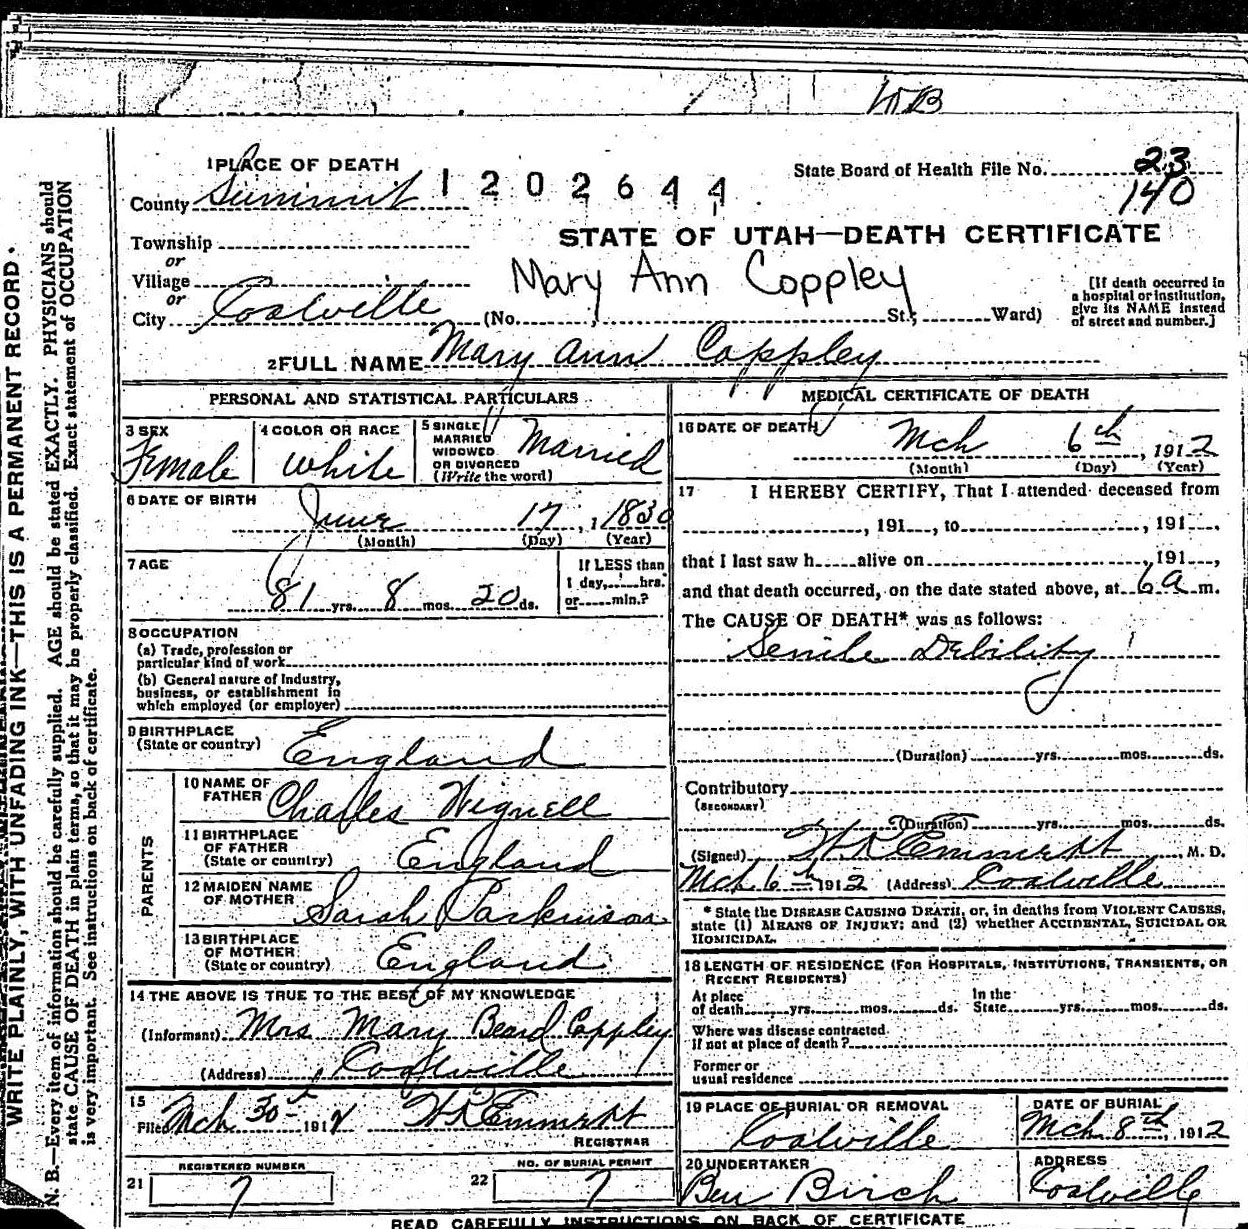 WB
1 PLACE OF DEATH
County Summit
1 2 0 2 6 4 4
State Board of Health File No. 23
140
STATE OF UTAH—DEATH CERTIFICATE
Township
or
Village
or
City Coalville
Mary Ann Coppley
(No. St.; Ward)
[If death occurred in
a hospital or institution,
give its NAME instead
of street and number.]
2 FULL NAME Mary Ann Coppley
PERSONAL AND STATISTICAL PARTICULARS
3 SEX
Female
4 COLOR OR RACE
White
5 SINGLE
MARRIED
WIDOWED
OR DIVORCED
(Write the word)
Married
6 DATE OF BIRTH
June 17, 1 1830
(Month) (Day) (Year)
7 AGE
81 yrs. 8 mos. 20 ds.
If LESS than
1 day, hrs.
or min.?
8 OCCUPATION
(a) Trade, profession or
particular kind of work
(b) General nature of Industry,
business, or establishment in
which employed (or employer)
9 BIRTHPLACE
(State or country) England
PARENTS
10 NAME OF
FATHER Charles Wignell
11 BIRTHPLACE
OF FATHER
(State or country) England
12 MAIDEN NAME
OF MOTHER Sarah Parkinson
13 BIRTHPLACE
OF MOTHER
(State or country) England
14 THE ABOVE IS TRUE TO THE BEST OF MY KNOWLEDGE
(Informant) Mrs Mary Beard Coppley
(Address) Coalville
15
Filed Mch 30th 1912 H R Emmert
REGISTRAR
REGISTERED NUMBER
21 7
NO. OF BURIAL PERMIT
22 7
MEDICAL CERTIFICATE OF DEATH
16 DATE OF DEATH
Mch 6th, 1912
(Month) (Day) (Year)
17 I HEREBY CERTIFY, That I attended deceased from
, 191 , to , 191 ,
that I last saw h alive on , 191 ,
and that death occurred, on the date stated above, at 6 a m.
The CAUSE OF DEATH* was as follows:
Senile Debility
(Duration) yrs. mos. ds.
Contributory
(SECONDARY)
(Duration) yrs. mos. ds.
(Signed) H R Emmert M. D.
Mch 6th 1912 (Address) Coalville
* State the DISEASE CAUSING DEATH, or, in deaths from VIOLENT CAUSES,
state (1) MEANS OF INJURY; and (2) whether ACCIDENTAL, SUICIDAL OR
HOMICIDAL.
18 LENGTH OF RESIDENCE (FOR HOSPITALS, INSTITUTIONS, TRANSIENTS, OR
RECENT RESIDENTS)
At place
of death yrs. mos. ds.
In the
State yrs. mos. ds.
Where was disease contracted
If not at place of death?
Former or
usual residence
19 PLACE OF BURIAL OR REMOVAL
Coalville
DATE OF BURIAL
Mch 8th, 1912
20 UNDERTAKER
Ben Birch
ADDRESS
Coalville
READ CAREFULLY INSTRUCTIONS ON BACK OF CERTIFICATE
WRITE PLAINLY, WITH UNFADING INK—THIS IS A PERMANENT RECORD.
N. B.—Every item of information should be carefully supplied. AGE should be stated EXACTLY. PHYSICIANS should
state CAUSE OF DEATH in plain terms, so that it may be properly classified. Exact statement of OCCUPATION
is very important. See instructions on back of certificate.